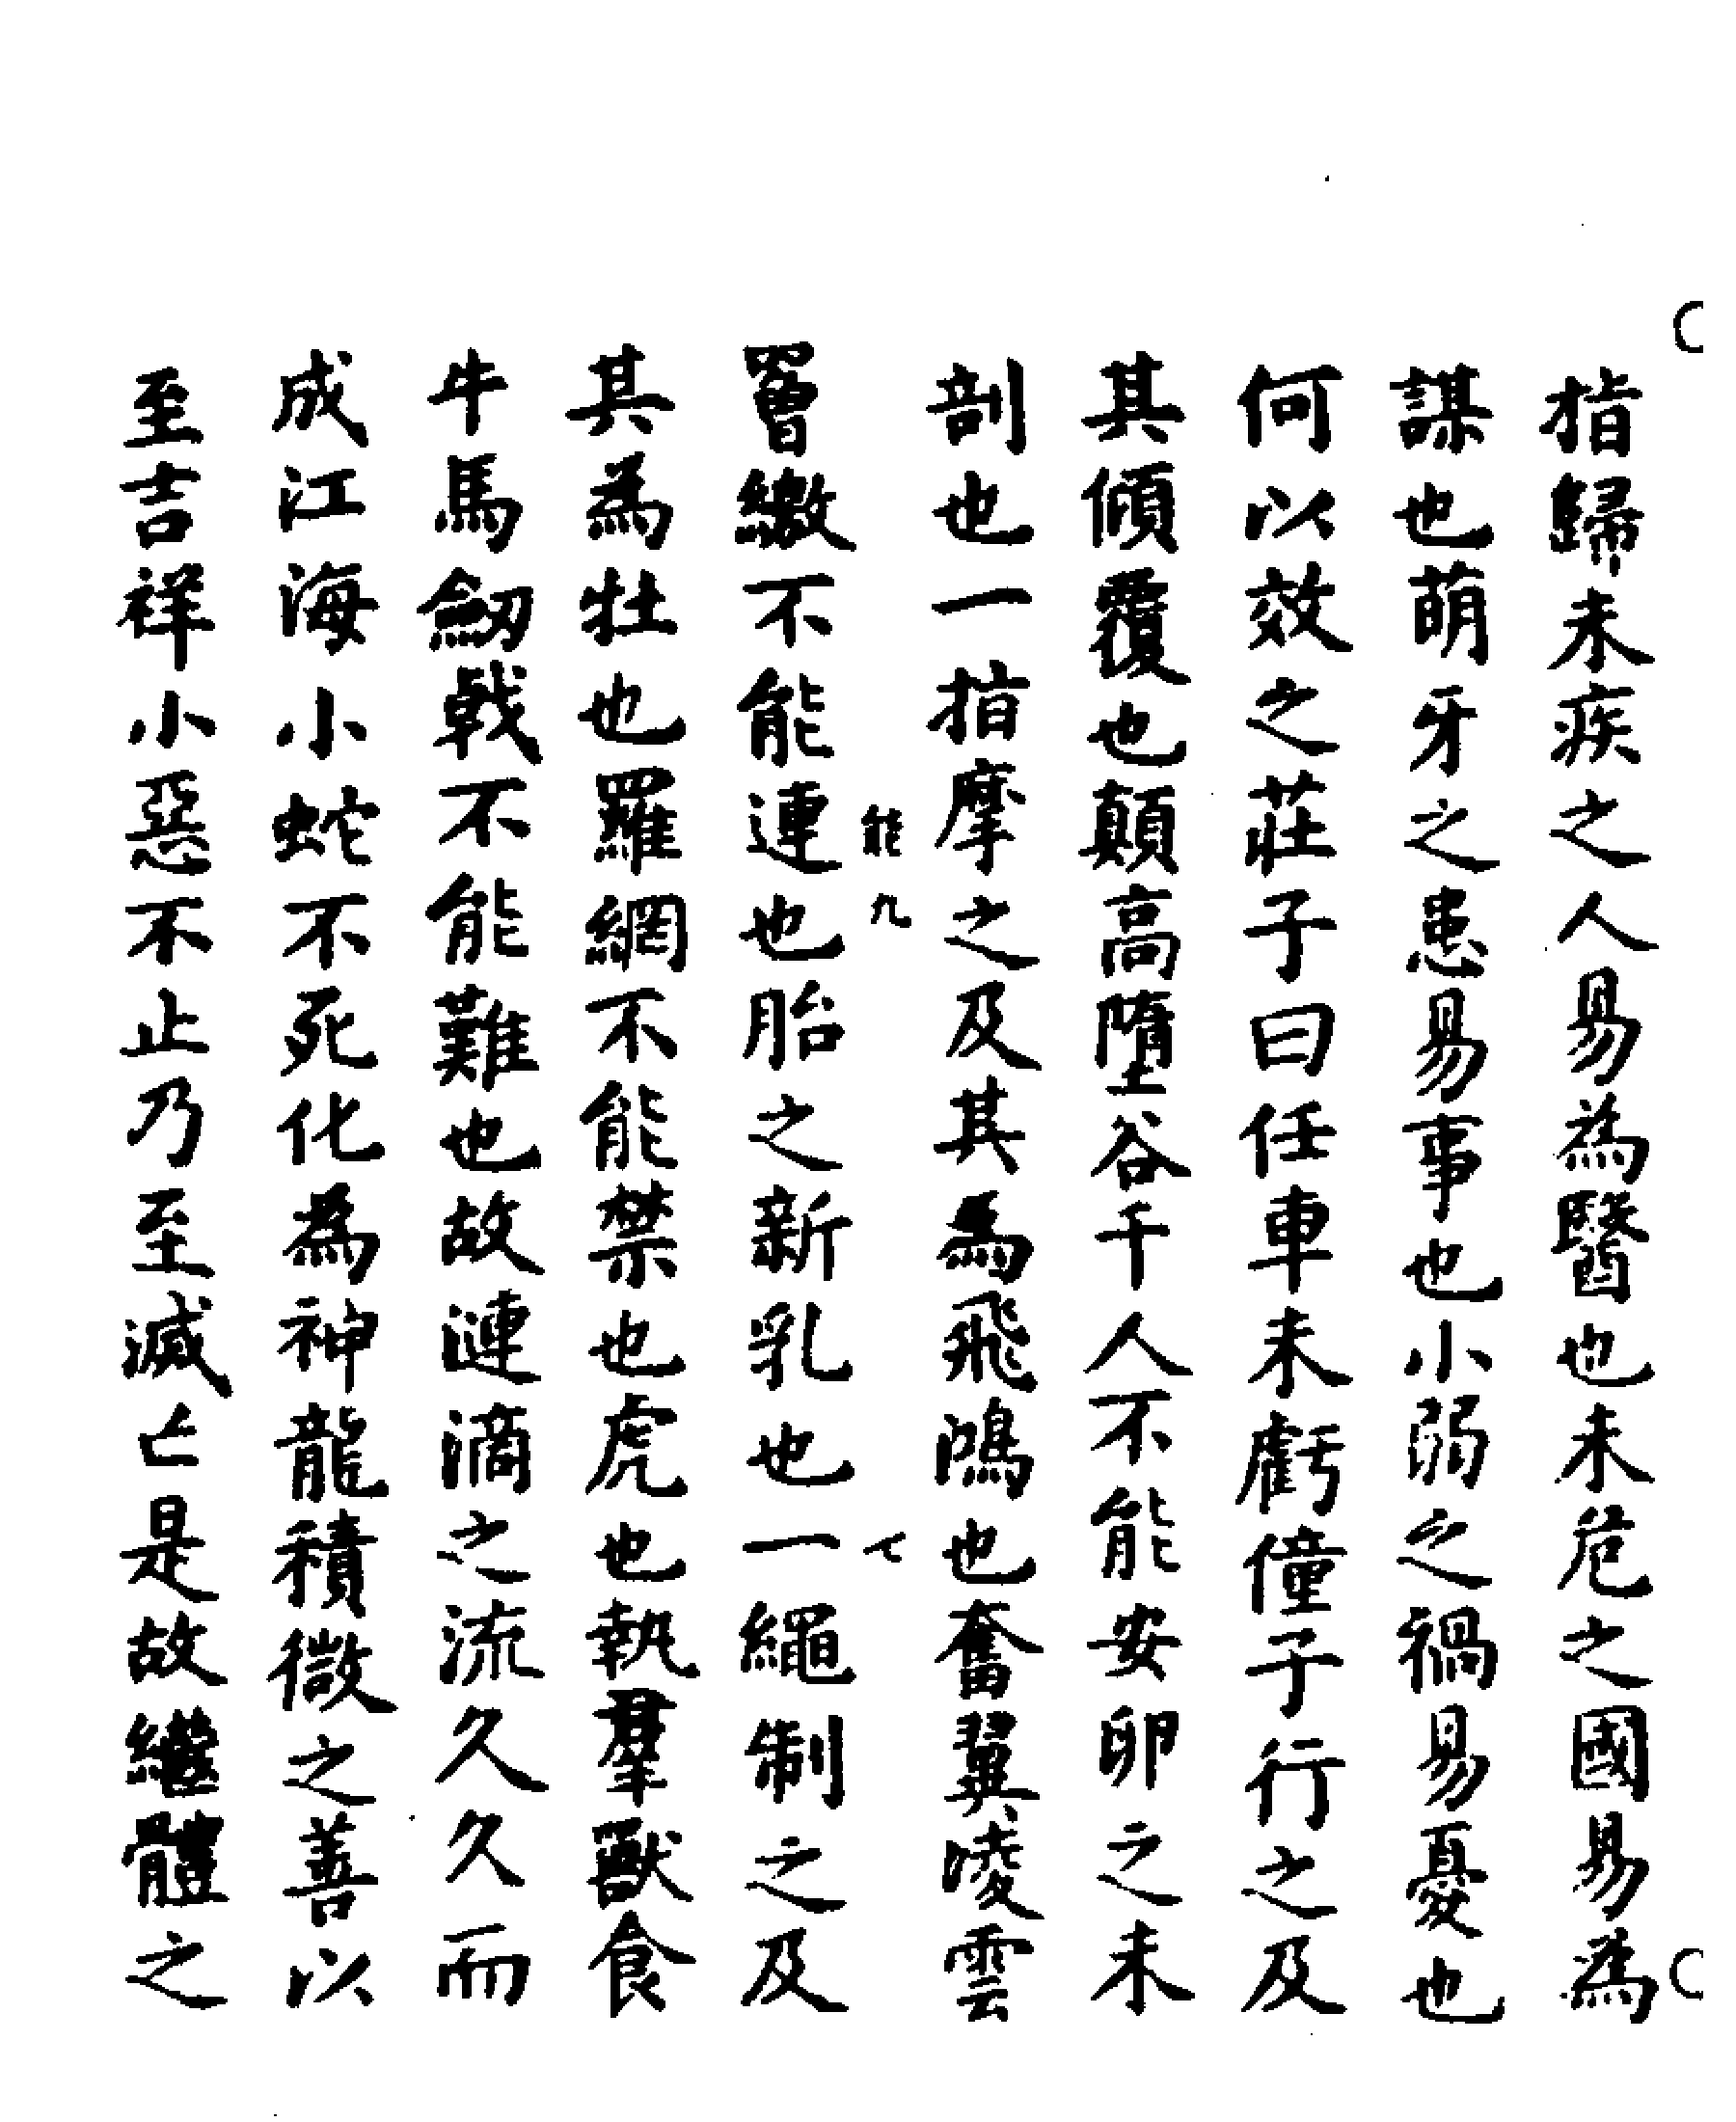 指歸未疾之人易為醫也未危之國易為
謀也萌牙之患易事也小弱之禍易憂也
何以效之莊子曰任車未虧僮子行之及
其傾覆也顛高墮谷千人不能安卵之未
剖也一指摩之及其為飛鴻也奮翼淩雲
罾繳不能連也胎之新乳也一繩制之及
能九
七
其為牡也羅網不能禁也虎也執羣獸食
牛馬劒戟不能難也故漣滴之流久久而
成江海小蛇不死化為神龍積微之善以
至吉祥小惡不止乃至滅亡是故繼體之